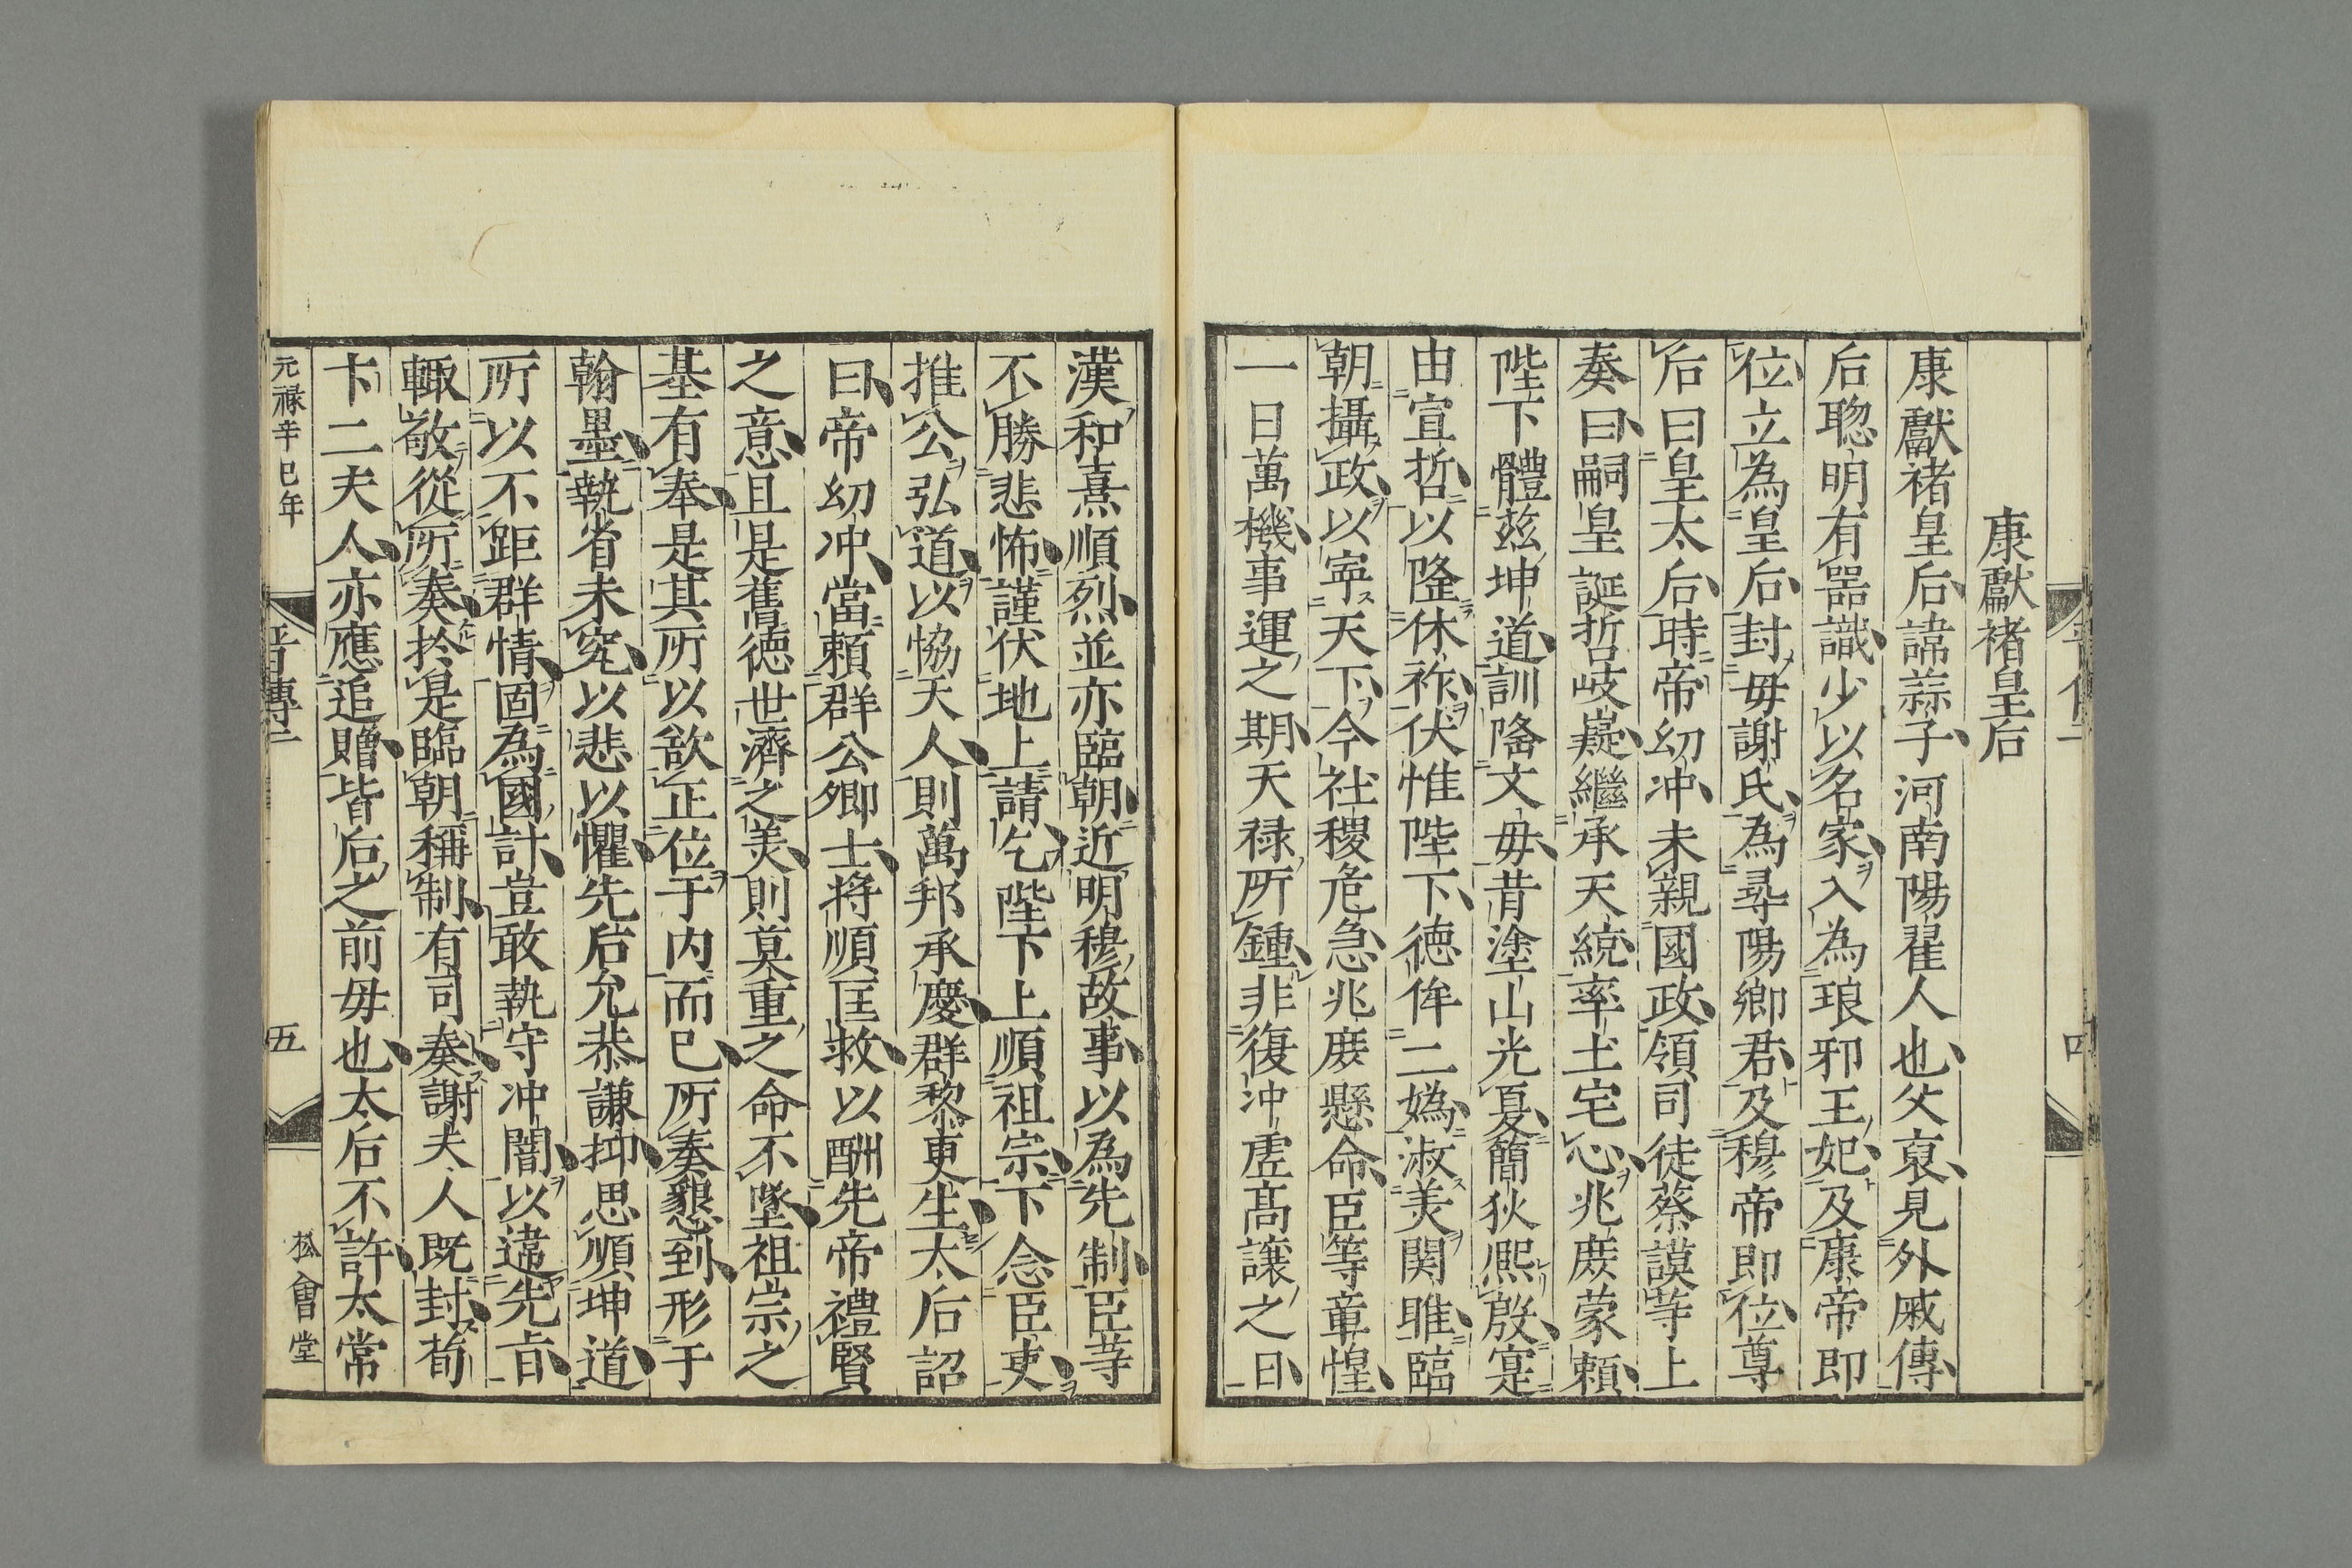 康獻褚皇后
康獻褚皇后諱蒜子河南陽翟人也父裒見外戚傳
后聦明有噐識少以名家入為琅邪王妃及康帝即
位立為皇后封毋謝氏為尋陽鄉君及穆帝即位尊
后曰皇太后時帝幼冲未親國政領司徒蔡謨等上
奏曰嗣皇誕哲岐嶷繼承天統率土宅心兆庻蒙賴
陛下體兹坤道訓隆文毋昔塗山光夏簡狄熈殷寔
由宣哲以隆休祚伏惟陛下徳侔二媯淑美関雎臨
朝攝政以寧天下今社稷危急兆庻懸命臣等章惶
一日萬機事運之期天禄所鍾非復冲虚髙讓之日
漢和熹順烈並亦臨朝近明穆故事以為先制臣等
不勝悲怖謹伏地上請乞陛下上順祖宗下念臣吏
推公弘道以恊天人則萬邦承慶群黎更生太后詔
曰帝幼冲當頼群公卿士将順匡救以酬先帝禮賢
之意且是舊徳世濟之美則莫重之命不墜祖宗之
基有奉是其所以欲正位于内而已所奏懇到形于
翰墨執省未究以悲以懼先后允恭謙抑思順坤道
所以不距群情固為國計豈敢執守冲闇以違先㫖
輙敬從所奏扵是臨朝稱制有司奏謝夫人既封荀
卞二夫人亦應追贈皆后之前毋也太后不許太常
元禄辛巳年
晋傳二
五
松會堂